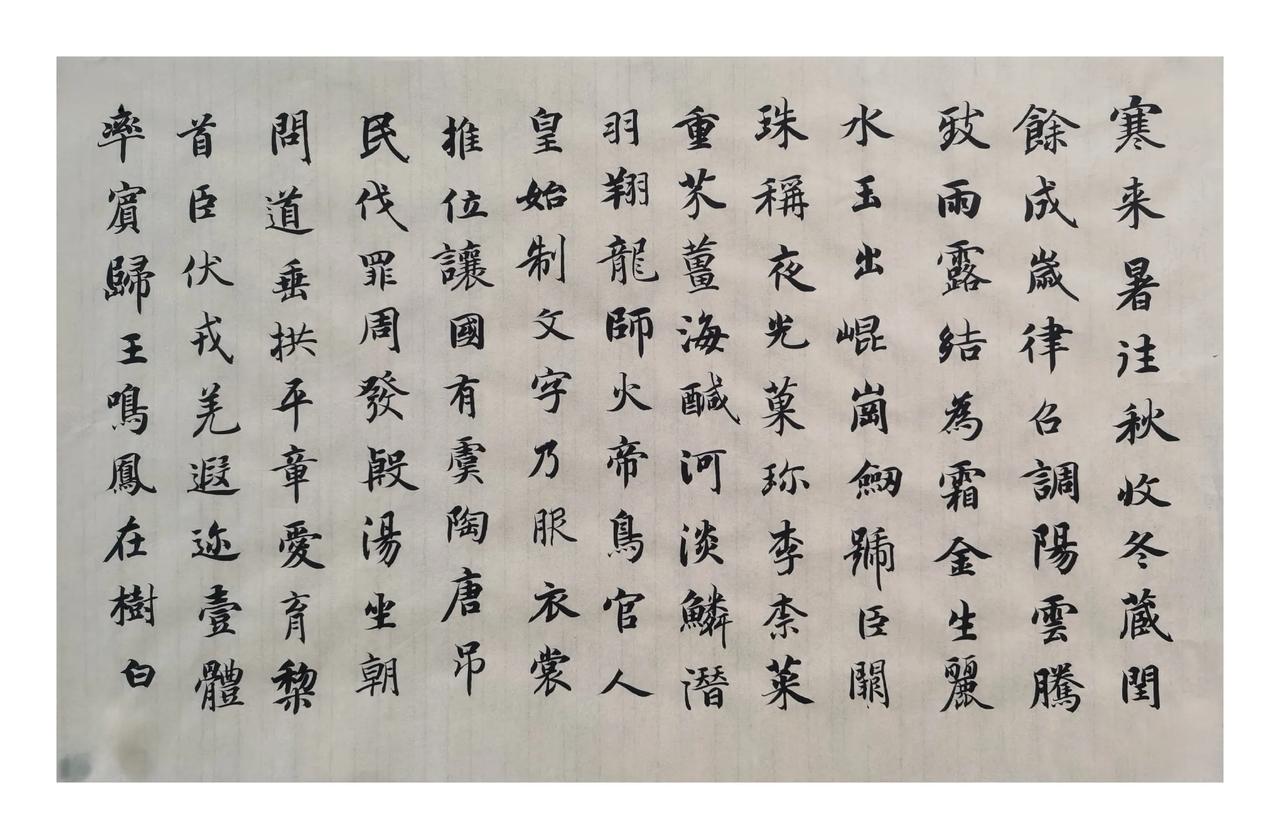 寒来暑往秋收冬蔵閏
餘成嵗律召調陽雲騰
致雨露結為霜金生麗
水玉出崐崗劒號臣闕
珠稱夜光菓珎李柰菜
重芥薑海鹹河淡鱗潛
羽翔龍師火帝鳥官人
皇始制文字乃服衣裳
推位讓國有虞陶唐吊
民伐罪周發殷湯坐朝
問道垂拱平章愛育黎
首臣伏戎羌遐迩壹體
率賓歸王鳴鳳在樹白